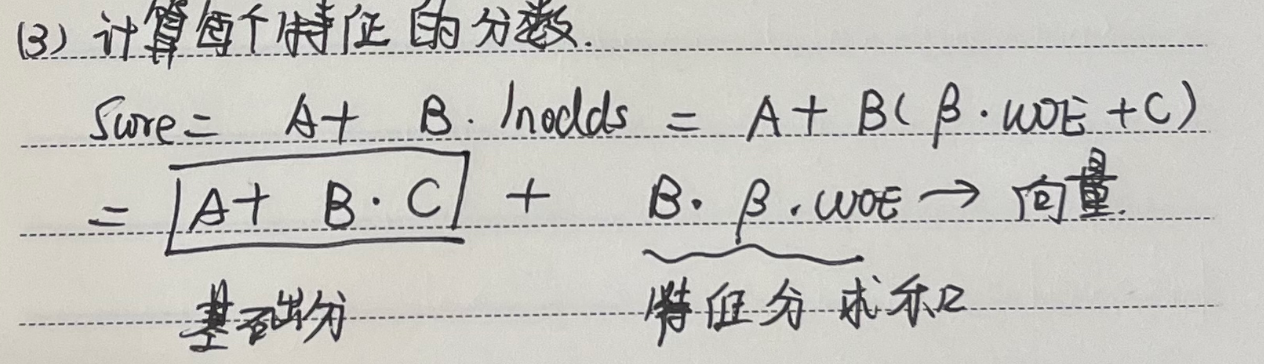 (3) 计算每个特征的分数.
Score = A + B · lnodds = A + B( β · WOE + C)
= A + B · C + B · β · WOE → 向量.
基础分 特征分求和